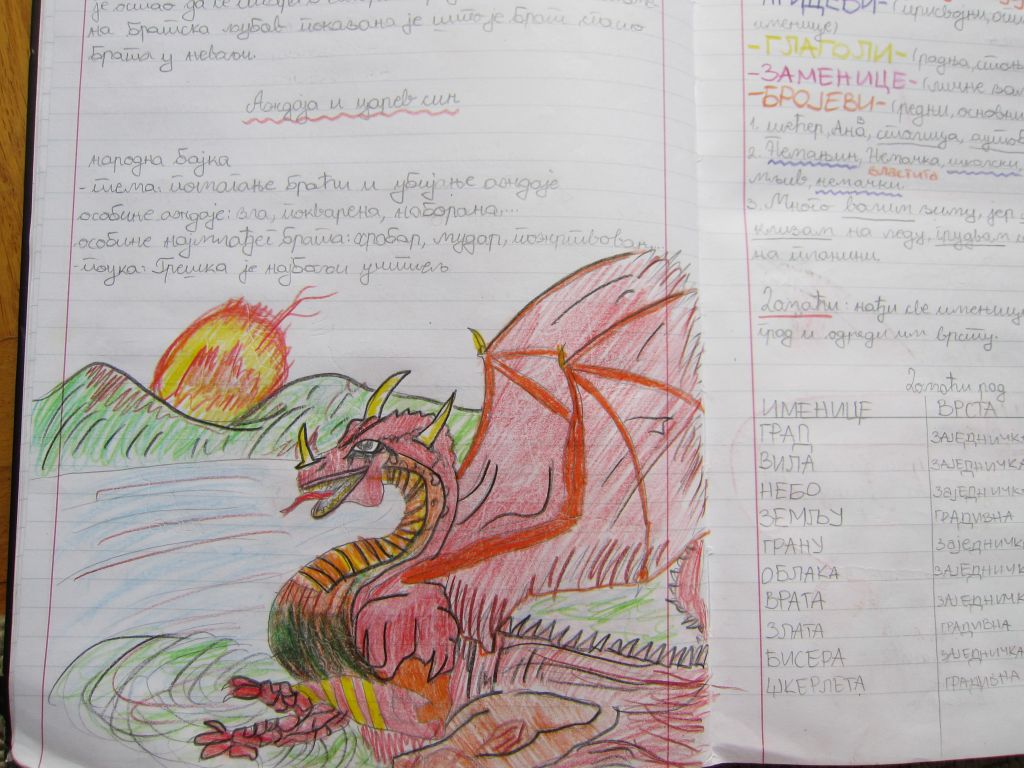 је остао да се
на Братска љубав показана је што је брат спасио
брата у невољи.
Аждаја и царев син
народна бајка
- тема: помагање браћи и убијање аждаје
особине аждаје: зла, покварена, наборана...
особине најмлађег брата: храбар, мудар, пожртвован...
- поука: Грешка је најбољи учитељ
ПРИДЕВИ- (присвојни,
именице)
-ГЛАГОЛИ- (радња,
-ЗАМЕНИЦЕ- (личне
-БРОЈЕВИ- (редни, основни
1. шећер, Ана, столица,
2. Немањин, Немачка, школски,
властита
немачки.
3. Много волим зиму, јер
клизам на леду, грудвам
на планини.
Домаћи: нађи све именице
род и одреди им врсту.
Домаћи рад
ИМЕНИЦЕ ВРСТА
ГРАД ЗАЈЕДНИЧКА
ВИЛА ЗАЈЕДНИЧКА
НЕБО ЗАЈЕДНИЧКА
ЗЕМЉУ ГРАДИВНА
ГРАНУ ЗАЈЕДНИЧКА
ОБЛАКА ЗАЈЕДНИЧКА
ВРАТА ЗАЈЕДНИЧКА
ЗЛАТА ГРАДИВНА
БИСЕРА ЗАЈЕДНИЧКА
ШКЕРЛЕТА ГРАДИВНА